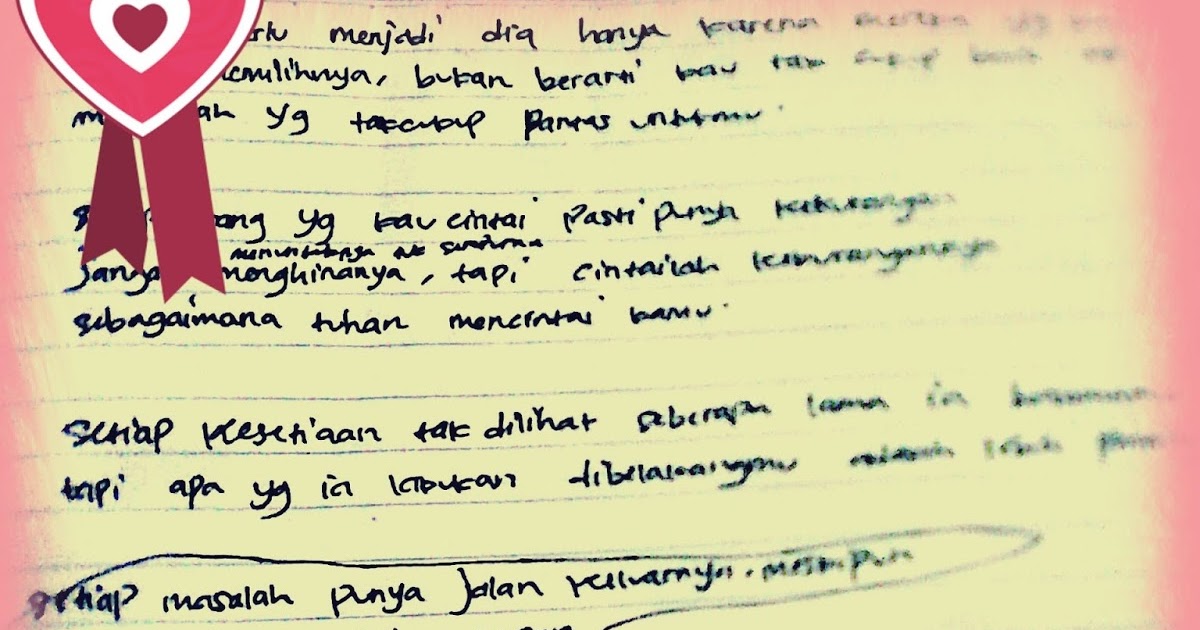 menjadi dia hanya karena mereka yg
bukan berarti kau tak cukup baik
yg takcukup pantas untukmu.
yg kau cintai pasti punya kekurangan
menuntutnya tuk sempurna
menghinanya, tapi cintailah kekurangannya
sebagaimana tuhan mencintai kamu.
setiap kesetiaan tak dilihat seberapa lama ia bersamamu
tapi apa yg ia lakukan dibelakangmu adalah lebih
setiap masalah punya jalan keluarnya. meskipun